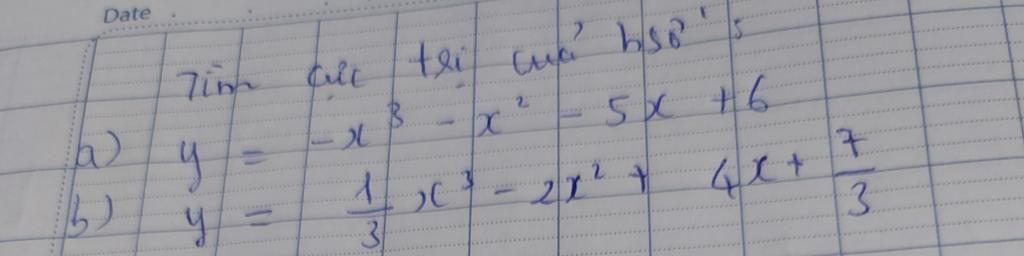 Date
Tìm cực trị của hsố:
a) y = -x³ - x² - 5x + 6
b) y = 1/3 x³ - 2x² + 4x + 7/3